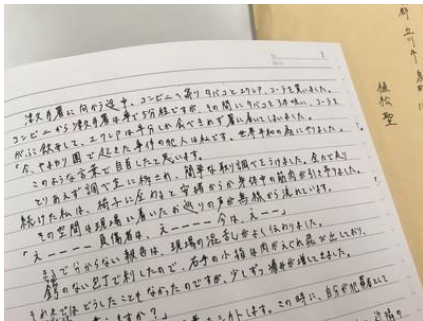 津久井署に向かう途中、コンビニへ寄りタバコとエクレア、コーラを買いました。
コンビニから津久井署は車で5分程ですが、その間にタバコを3本吸い、コーラを
がぶ飲みして、エクレアは半分しか食べきれず署に着いてしまいました。
「今、やまゆり園で起きた事件の犯人は私です。世界平和の為にやりました。」
このような言葉で自首したと思います。
とりあえず調べ室に押され、簡単な取り調べをうけました。全力で走り
続けた私は、椅子に座ると安堵からか身体中の筋肉が引きつりました。
その空間は現場に着いたお巡りの声が無線から流れています。
「えーーーー負傷者は、えーーーー今は、えーー」
まるで分からない報告は、現場の混乱がよく伝わりました。
鍔のない包丁で刺したので、右手の小指は肉がえぐれ骨が出ており、
それまではどうしたこともなかったのですが、少しずつ痛みが増してきました。
すか?」
この時に、自分が犯罪者として
都 立川市
植松 聖